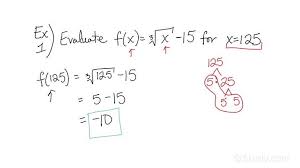 Ex 1) Evaluate f(x)=∛x -15 for x=125
f(125) = ∛125 -15
= 5-15
= -10
125
5 25
5 5